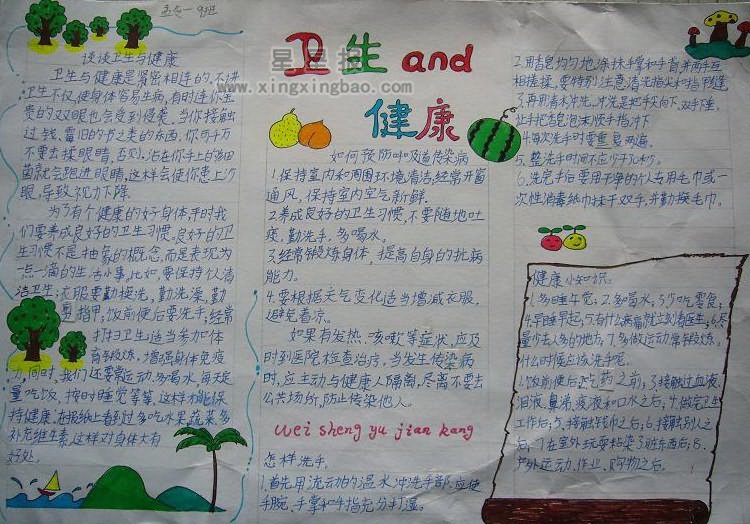 五(一)班
谈谈卫生与健康
卫生与健康是紧密相连的,不讲
卫生不仅使身体容易生病,有时连你宝
贵的双眼也会受到侵袭。当你接触
过钱、富旧的书之类的东西,你可千万
不要去揉眼睛,否则,沾在你手上的细
菌就会跑进眼睛,这样会使你患上沙
眼,导致视力下降。
为了有个健康的好身体,平时我
们要养成良好的卫生习惯。良好的卫
生习惯不是抽象的概念,而是表现为
一点一滴的生活小事,比如,要保持个人清
洁卫生:衣服要勤换洗,勤洗澡,勤
剪指甲,饭前便后要洗手,经常
打扫卫生适当参加体
育锻炼,增强身体免疫
力,同时,我们还要常运动,多喝水,每天定
量吃饭,按时睡觉等等,这样才能保
持健康。在报纸上看到过多吃水果蔬菜,多
补充维生素,这样对身体大有
好处。
星星报
www.xingxingbao.com
卫生 and
健康
如何预防呼吸道传染病
1.保持室内和周围环境清洁,经常开窗
通风,保持室内空气新鲜.
2.养成良好的卫生习惯,不要随地吐
痰,勤洗手,多喝水。
3.经常锻炼身体,提高自身的抗病
能力。
4.要根据天气变化适当增减衣服,
避免着凉。
如果有发热、咳嗽等症状,应及
时到医院检查治疗,当发生传染病
时,应主动与健康人隔离,尽离不要去
公共场所,防止传染他人。
wei sheng yu jian kang
怎样洗手.
1.首先用流动的温水冲洗手部,应使
手腕、手掌和手指充分打湿。
2.用肥皂均匀地涂抹手掌和手背,并两手互
相揉搓,要特别注意清洗指尖和指甲缝
3.再用清水冲洗,冲洗是把手尖向下,双手下垂,
让手把皂泡沫顺手指冲下
4.每次洗手时要重复两遍.
5.整洗手时间不应少于30秒
6.洗完手后要用干净的个人专用毛巾或一
次性消毒纸巾抹干双手,并勤换毛巾。
健康小知识:
1.多睡午觉;2.多喝水;3.少吃零食;
4.早睡早起;5.有什么病痛就立刻看医生;6.尽
量少去人多的地方;7.多做运动常锻炼。
什么时候应该洗手呢。
1.饭前便后;2.吃药之前;3.接触过血液、
泪液、鼻涕、痰液和口水之后;4.做完卫生
工作后;5.接触钱币之后;6.接触别人之
后;7.在室外玩耍粘染了脏东西后;8.
户外运动、作业、购物之后。